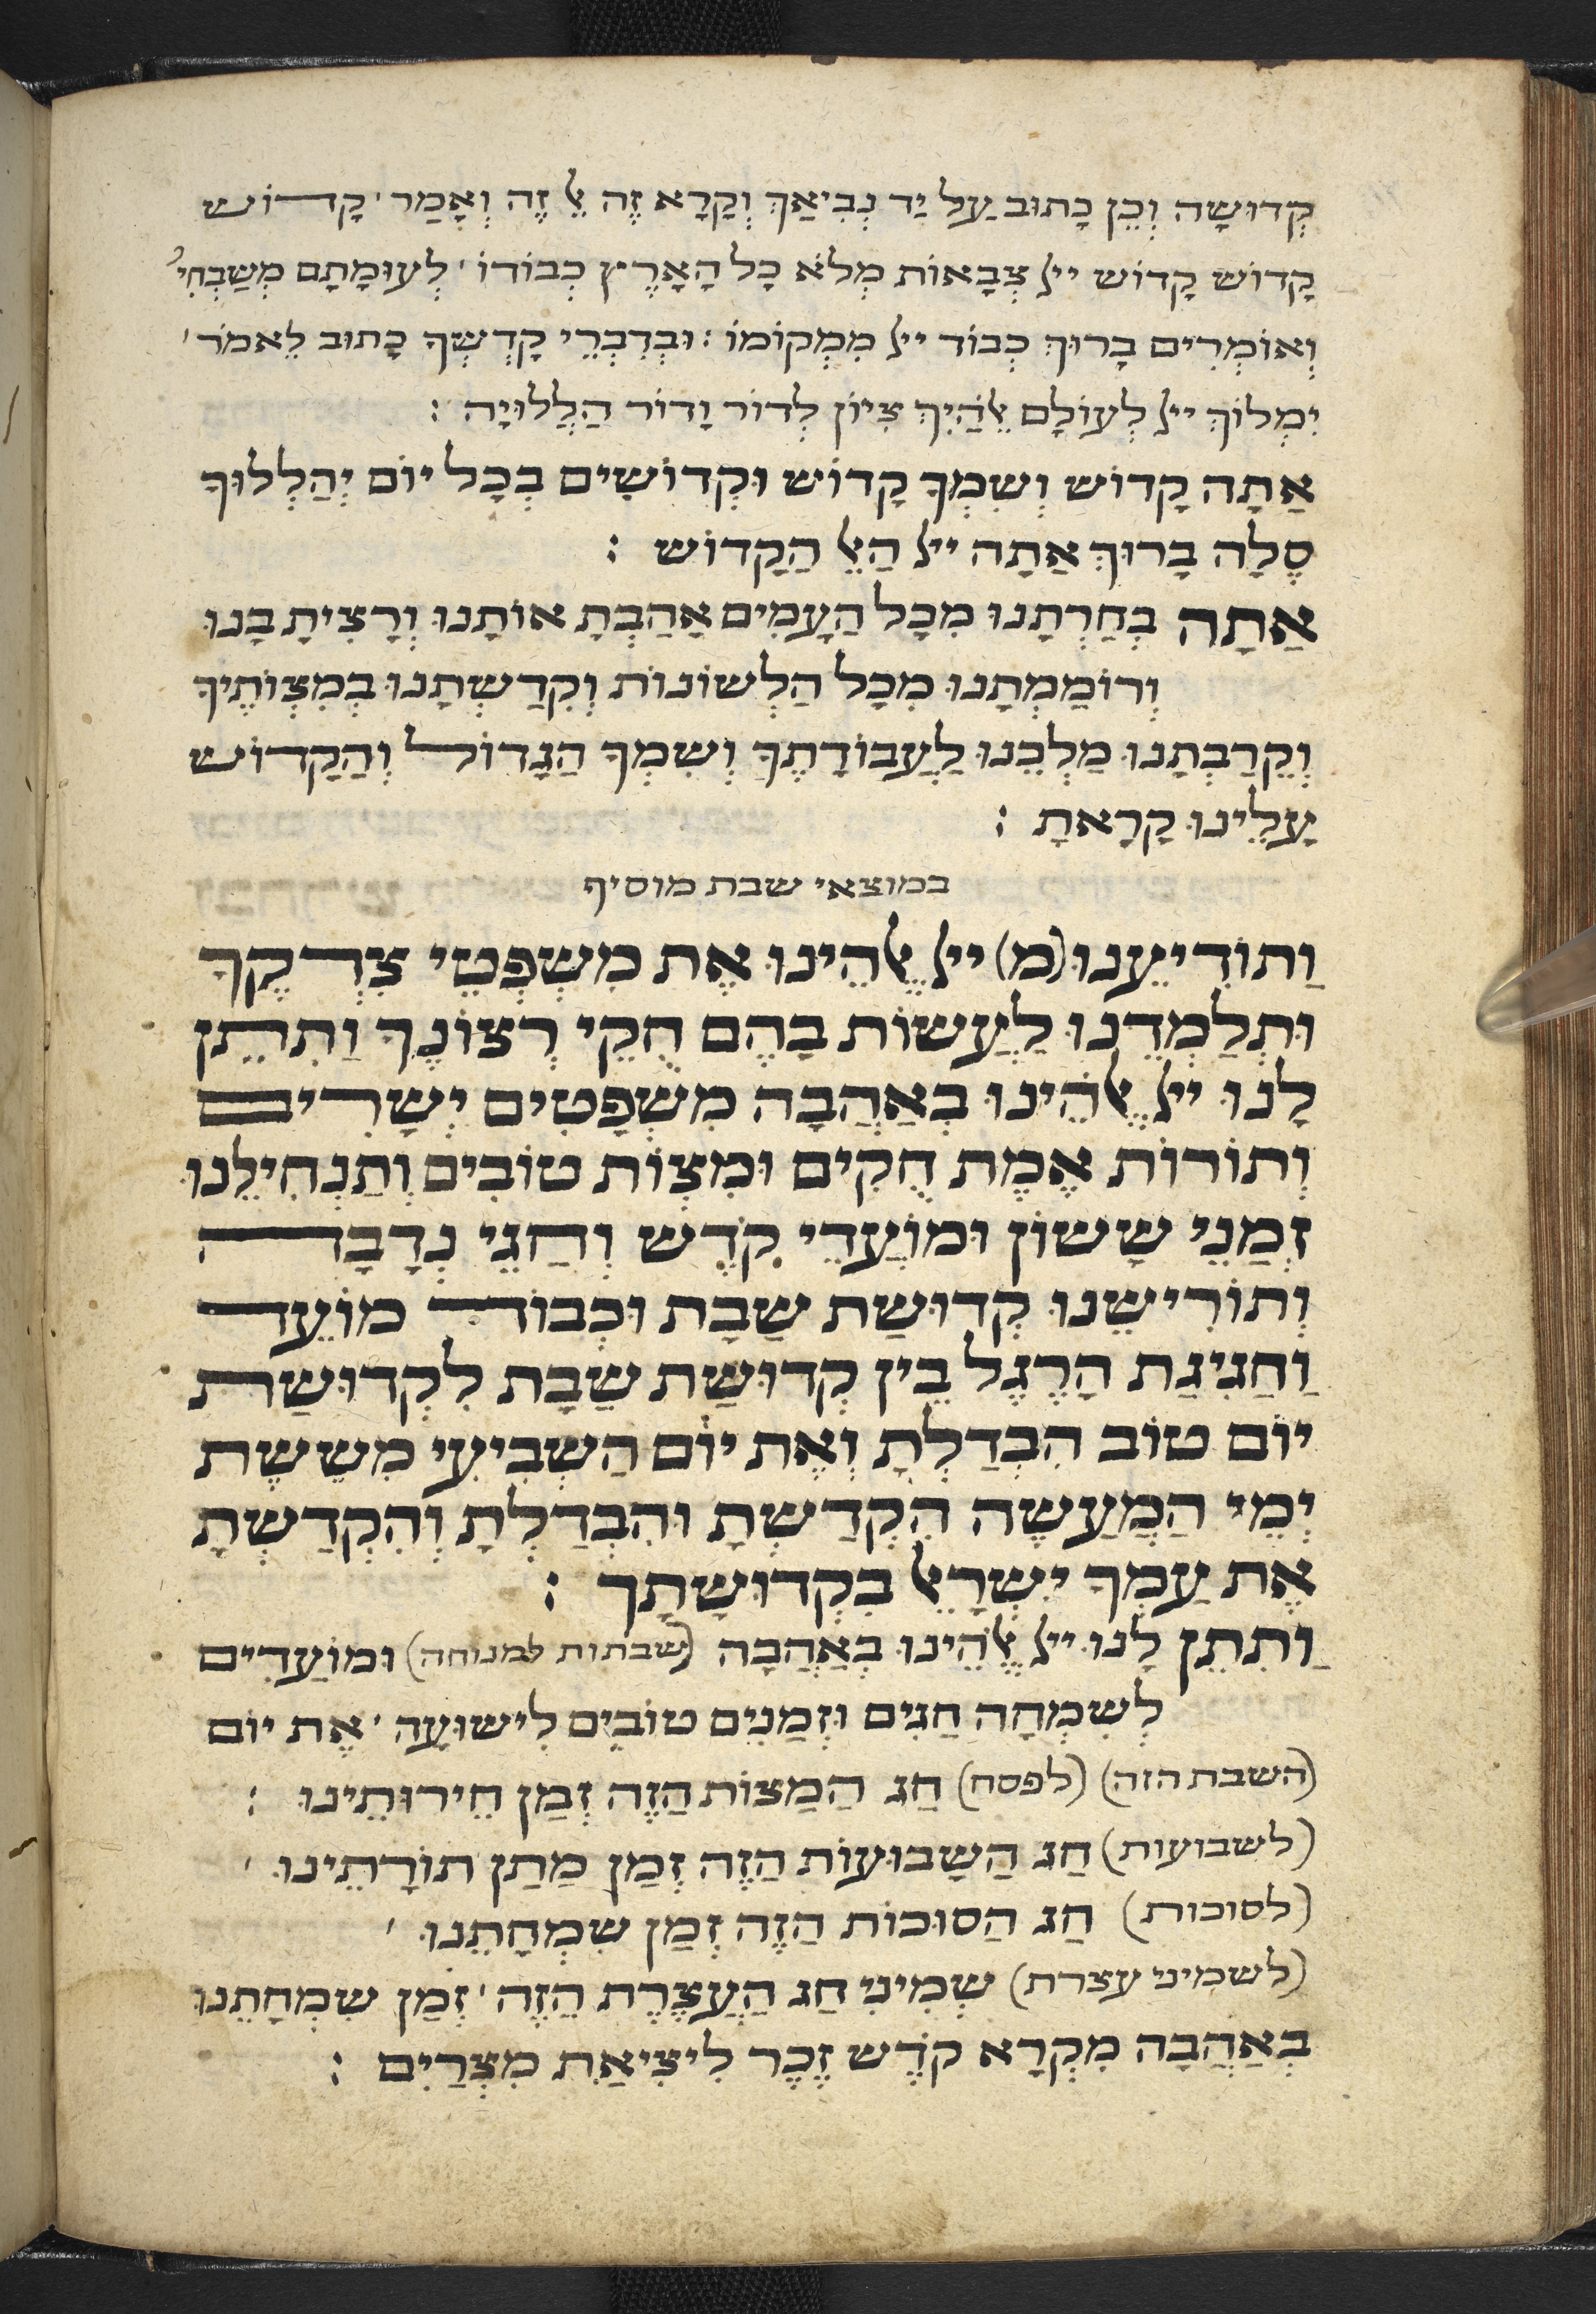 קְדוּשָה וְכֵן כָתוּב עַל יַד נְבִיאַךְ וְקָרָא זֶה אֶל זֶה וְאָמַר' קָדוֹש
קָדוֹש קָדוֹש ייל צְבָאוֹת מְלֹא כָל הָאָרֶץ כְבוֹדוֹ' לְעוּמָתָם מְשַבְחִי'
וְאוֹמְרִים בָרוּךְ כְבוֹד ייל מִמְקוֹמוֹ : וּבְדִבְרֵי קָדְשְךָ כָתוּב לֵאמֹר'
יִמְלוֹךְ ייל לְעוֹלָם אֱלֹהַיִךְ צִיוֹן לְדוֹר וָדוֹר הַלְלוּיָה :
אַתָה קָדוֹש וְשִמְךָ קָדוֹש וּקְדוֹשִים בְכָל יוֹם יְהַלְלוּךָ
סֶלָה בָרוּךְ אַתָה ייל הָאֵל הַקָדוֹש :
אַתָה בְחַרְתָנוּ מִכָל הַעָמִים אָהַבְתָ אוֹתָנוּ וְרָצִיתָ בָנוּ
וְרוֹמַמְתָנוּ מִכָל הַלְשוֹנוֹת וְקִדַשְתָנוּ בְמִצְוֹתֶיךָ
וְקֵרַבְתָנוּ מַלְכֵנוּ לַעֲבוֹדָתֶךָ וְשִמְךָ הַגָדוֹל וְהַקָדוֹש
עָלֵינוּ קָרָאתָ :
במוצאי שבת מוסיף
וַתוֹדִיעֵנוּ (מ) ייל אֱלֹהֵינוּ אֶת מִשְפְטֵי צִדְקֶךָ
וּתְלַמְדֵנוּ לַעֲשוֹת בָהֶם חֻקֵי רְצוֹנֶךָ וַתִתֵן
לָנוּ ייל אֱלֹהֵינוּ בְאַהֲבָה מִשְפָטִים יְשָרִים
וְתוֹרוֹת אֱמֶת חֻקִים וּמִצְוֹת טוֹבִים וְתַנְחִילֵנוּ
זְמַנֵי שָשוֹן וּמוֹעֲדֵי קֹדֶש וְחַגֵי נְדָבָה
וְתוֹרִישֵנוּ קְדוּשַת שַבָת וּכְבוֹד מוֹעֵד
וַחֲגִיגַת הָרֶגֶל בֵין קְדוּשַת שַבָת לִקְדוּשַת
יוֹם טוֹב הִבְדַלְתָ וְאֶת יוֹם הַשְבִיעִי מִשֵשֶת
יְמֵי הַמַעֲשֶה הִקְדַשְתָ וְהִבְדַלְתָ וְהִקְדַשְתָ
אֶת עַמְךָ יִשְרָאֵל בִקְדוּשָתָךְ :
וַתִתֵן לָנוּ ייל אֱלֹהֵינוּ בְאַהֲבָה (שבתות למנוחה) וּמוֹעֲדִים
לְשִמְחָה חַגִים וּזְמַנִים טוֹבִים לִישוּעָה' אֶת יוֹם
(השבת הזה) (לפסח) חַג הַמַצוֹת הַזֶה זְמַן חֵירוּתֵינוּ :
(לשבועות) חַג הַשָבוּעוֹת הַזֶה זְמַן מַתַן תוֹרָתֵינוּ '
(לסוכות) חַג הַסוּכוֹת הַזֶה זְמַן שִמְחָתֵנוּ '
(לשמיני עצרת) שְמִינִי חַג הָעֲצֶרֶת הַזֶה' זְמַן שִמְחָתֵנוּ
בְאַהֲבָה מִקְרָא קֹדֶש זֶכֶר לִיצִיאַת מִצְרַיִם :